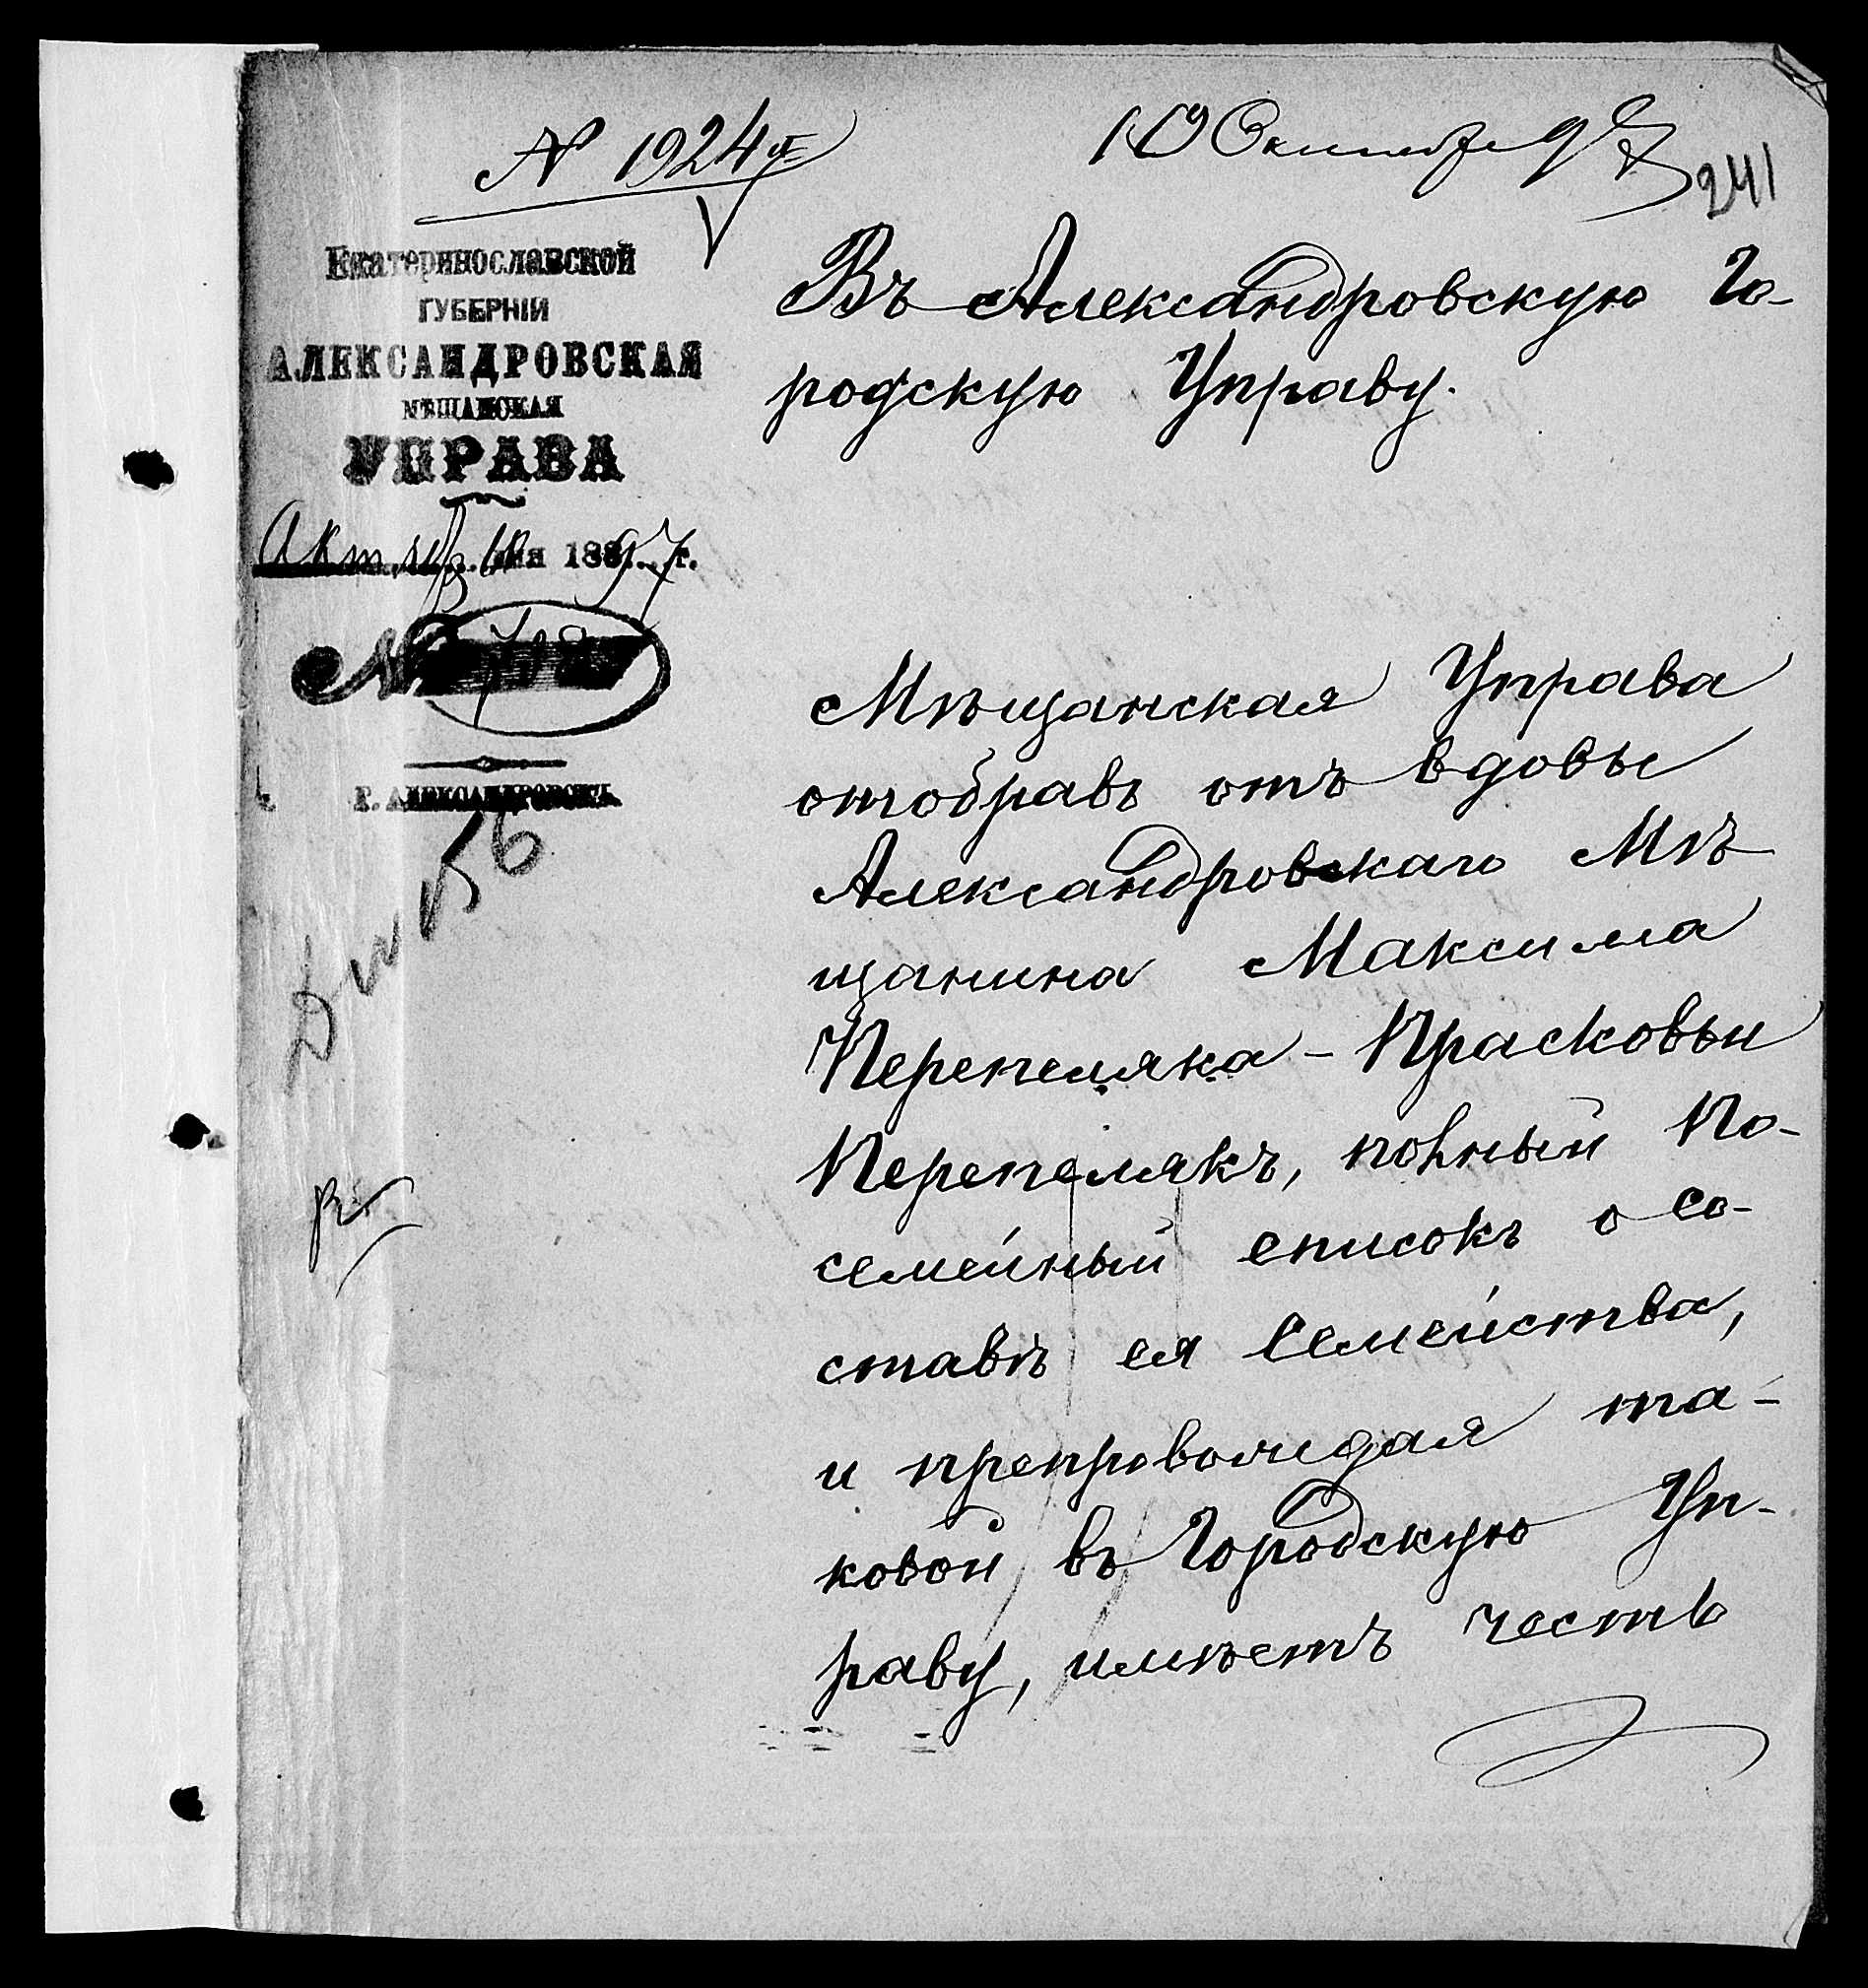 № 1924
10 Октября 97
241
Екатеринославской
ГУБЕРНІИ
АЛЕКСАНДРОВСКАЯ
МѢЩАНСКАЯ
УПРАВА
Октяб. 10 дня 1897 г.
№ 718
Г. АЛЕКСАНДРОВСКЪ.
Въ Александровскую Го-
родскую Управу.
Мѣщанская Управа
отобравъ отъ вдовы
Александровскаго Мѣ
щанина Максима
Перепеляка - Прасковьи
Перепелякъ, полный По-
семейный списокъ о со-
ставѣ ея Семейства,
и препровождая та-
ковой въ Городскую Уп-
раву, имѣетъ честь